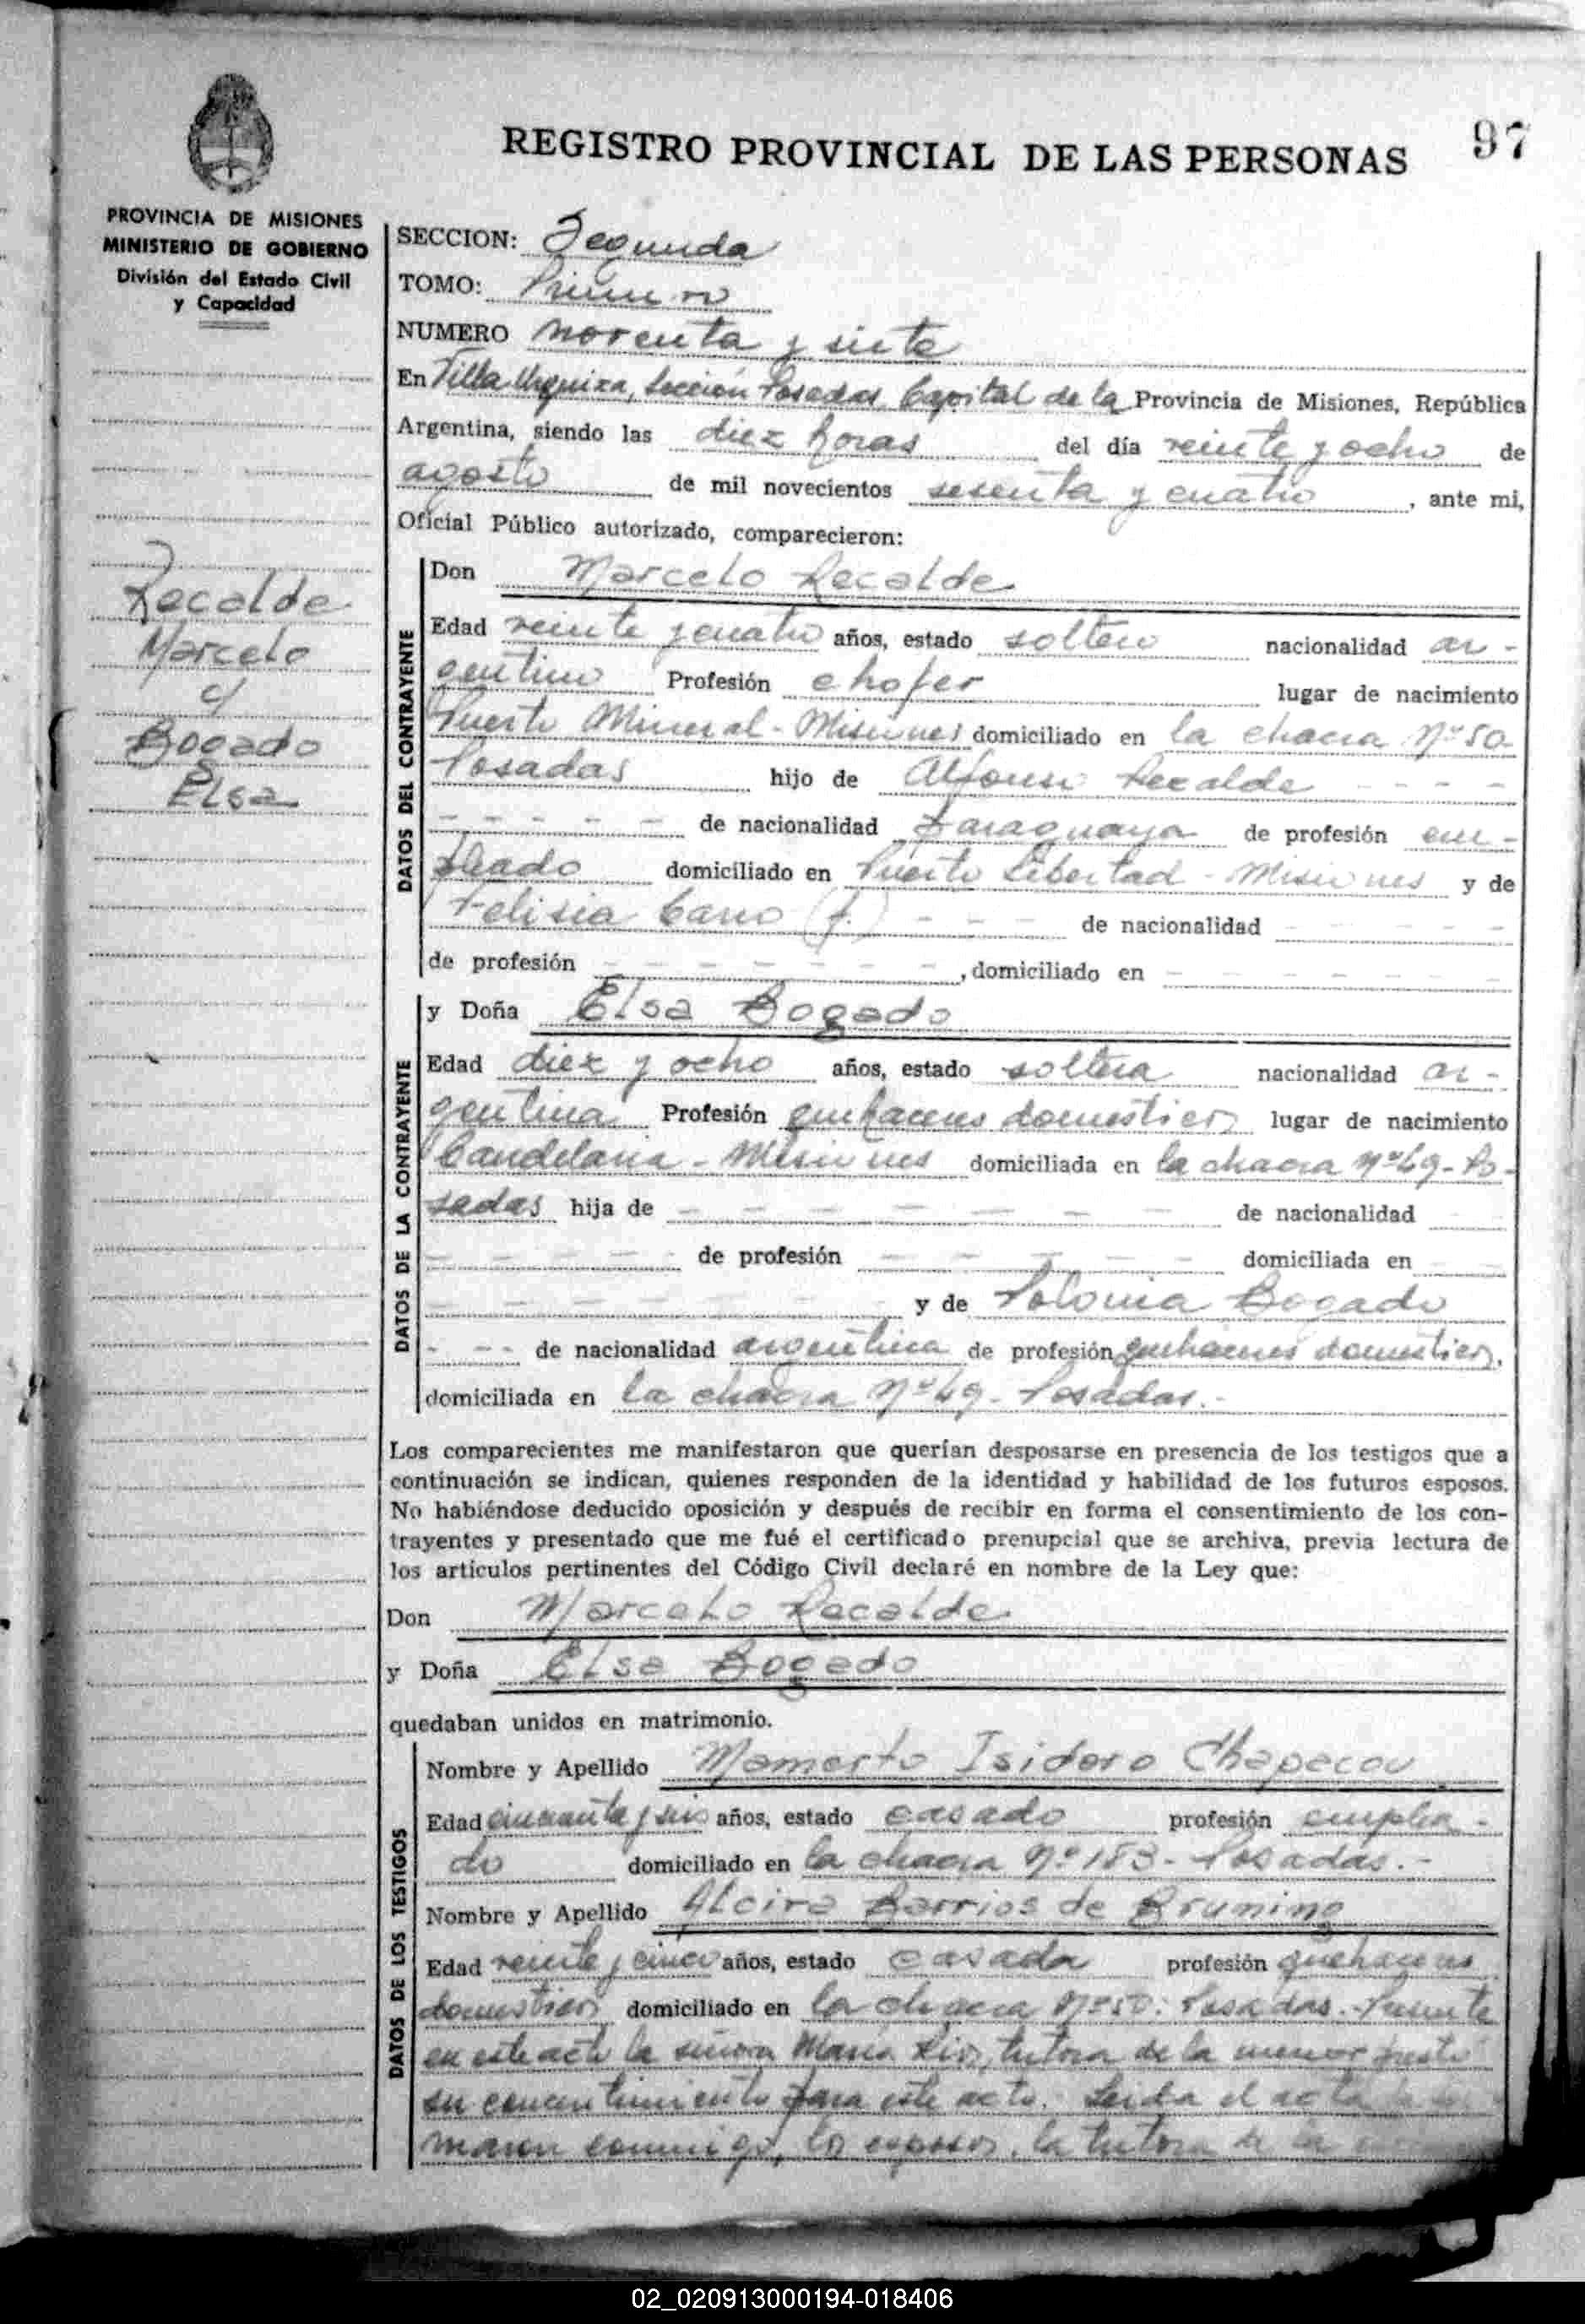 REGISTRO PROVINCIAL DE LAS PERSONAS 97
PROVINCIA DE MISIONES
MINISTERIO DE GOBIERNO
División del Estado Civil
y Capacidad
Recalde
Marcelo
c/
Bogado
Elsa
SECCION: Segunda
TOMO: Primero
NUMERO noventa y siete
En Villa Urquiza, Sección Posadas, Capital de la Provincia de Misiones, República
Argentina, siendo las diez horas del día veinte y ocho de
agosto de mil novecientos sesenta y cuatro, ante mi,
Oficial Público autorizado, comparecieron:
DATOS DEL CONTRAYENTE
Don Marcelo Recalde
Edad veinte y cuatro años, estado soltero nacionalidad ar-
gentino Profesión chofer lugar de nacimiento
Puerto Mineral - Misiones domiciliado en la chacra Nº 50-
Posadas hijo de Alfonso Recalde - - -
- - - - - de nacionalidad paraguaya de profesión em-
pleado domiciliado en Puerto Libertad - Misiones y de
Felisia Cano (f.) - - - de nacionalidad - - - -
de profesión - - - - - - -, domiciliado en - - - - - -
DATOS DE LA CONTRAYENTE
y Doña Elsa Bogado
Edad diez y ocho años, estado soltera nacionalidad ar-
gentina Profesión quehaceres domesticos lugar de nacimiento
Candelaria - Misiones domiciliada en la chacra Nº 69 - Po-
sadas hija de - - - - - - de nacionalidad
- - - - - - de profesión - - - - - domiciliada en - -
- - - - - - y de Polonia Bogado
- - - de nacionalidad argentina de profesión quehaceres domesticos,
domiciliada en la chacra Nº 69 - Posadas.-
Los comparecientes me manifestaron que querían desposarse en presencia de los testigos que a
continuación se indican, quienes responden de la identidad y habilidad de los futuros esposos.
No habiéndose deducido oposición y después de recibir en forma el consentimiento de los con-
trayentes y presentado que me fué el certificado prenupcial que se archiva, previa lectura de
los artículos pertinentes del Código Civil declaré en nombre de la Ley que:
Don Marcelo Recalde
y Doña Elsa Bogado
quedaban unidos en matrimonio.
DATOS DE LOS TESTIGOS
Nombre y Apellido Mamerto Isidoro Chapecou
Edad cincuenta y seis años, estado casado profesión emplea-
do domiciliado en la chacra Nº 183 - Posadas.-
Nombre y Apellido Alcira Barrios de Bruning
Edad veinte y cinco años, estado casada profesión quehaceres
domesticos domiciliado en la chacra Nº 50. Posadas.- Presente
en este acto la señora Maria tutora de la menor presto
su concentimiento para este acto. Leida el acta
maron conmigo, los esposos, la tutora de la
02_020913000194-018406